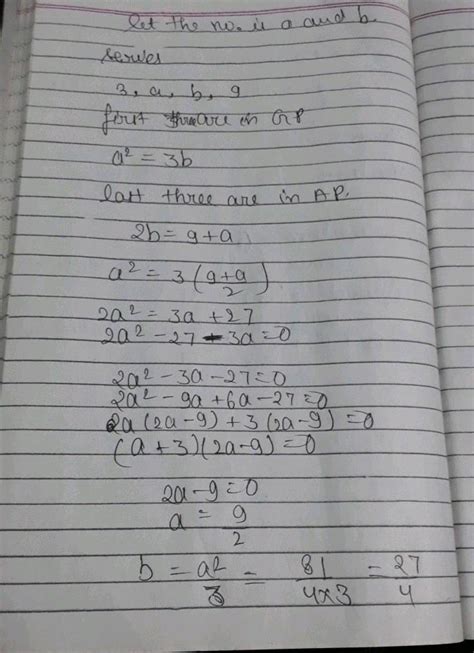 let the no. is a and b.
series
3, a, b, 9
first three are in GP
a² = 3b
last three are in AP.
2b = 9+a
a² = 3 (9+a/2)
2a² = 3a + 27
2a² - 27 - 3a = 0
2a² - 3a - 27 = 0
2a² - 9a + 6a - 27 = 0
2a (2a - 9) + 3 (2a - 9) = 0
(a + 3) (2a - 9) = 0
2a - 9 = 0
a = 9/2
b = a²/3 = 81/4×3 = 27/4